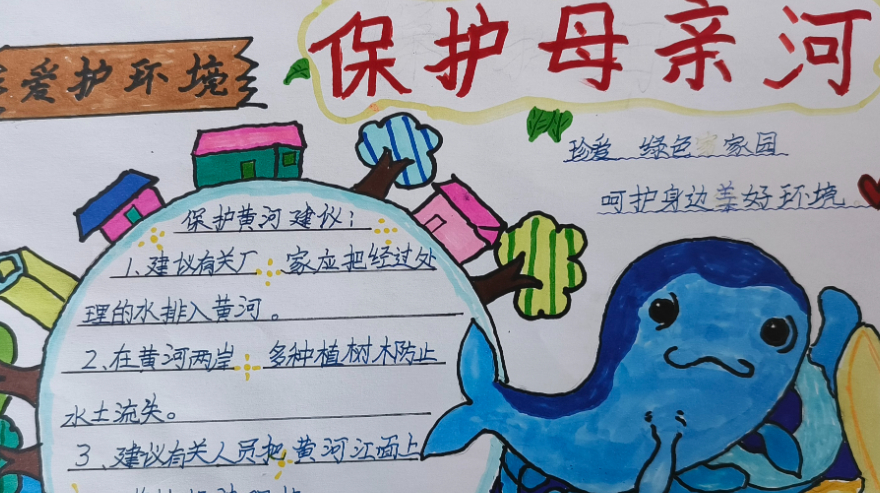 爱护环境
保护母亲河
珍爱 绿色家家园
呵护身边美好环境
保护黄河建议：
1、建议有关厂 家应把经过处
理的水排入黄河。
2、在黄河两岸 多种植树木防止
水土流失。
3、建议有关人员把黄河江面上